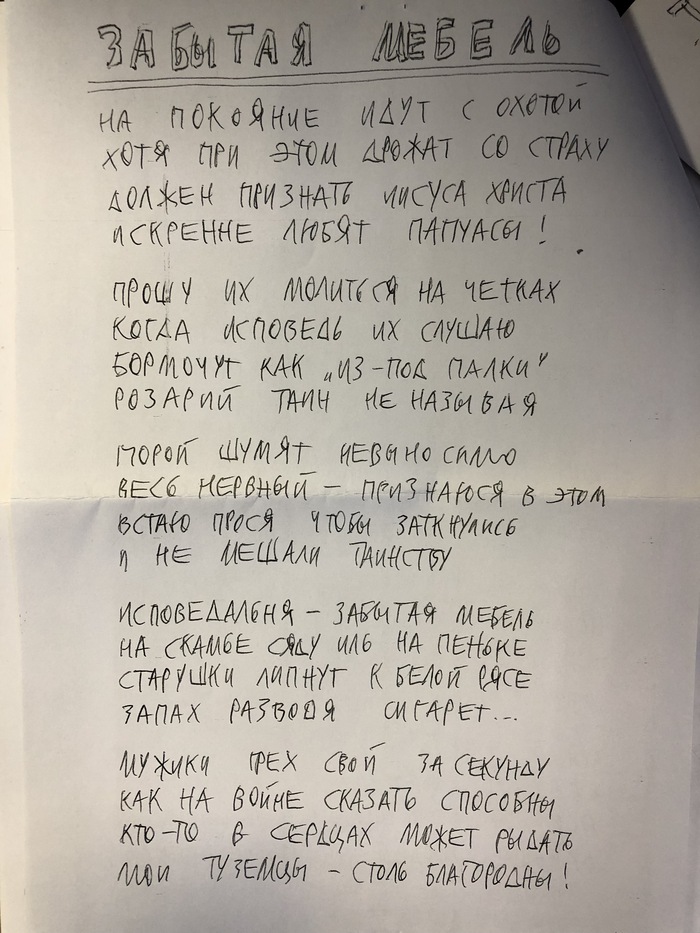 ЗАБЫТАЯ МЕБЕЛЬ
НА ПОКОЯНИЕ ИДУТ С ОХОТОЙ
ХОТЯ ПРИ ЭТОМ ДРОЖАТ СО СТРАХУ
ДОЛЖЕН ПРИЗНАТЬ ИИСУСА ХРИСТА
ИСКРЕННЕ ЛЮБЯТ ПАПУАСЫ!
ПРОШУ ИХ МОЛИТЬСЯ НА ЧЕТКАХ
КОГДА ИСПОВЕДЬ ИХ СЛУШАЮ
БОРМОЧУТ КАК „ИЗ-ПОД ПАЛКИ"
РОЗАРИЙ ТАИН НЕ НАЗЫВАЯ
ПОРОЙ ШУМЯТ НЕВЫНОСИМО
ВЕСЬ НЕРВНЫЙ – ПРИЗНАЮСЯ В ЭТОМ
ВСТАЮ ПРОСЯ ЧТОБЫ ЗАТКНУЛИСЬ
И НЕ МЕШАЛИ ТАИНСТВУ
ИСПОВЕДАЛЬНЯ – ЗАБЫТАЯ МЕБЕЛЬ
НА СКАМЬЕ СЯДУ ИЛЬ НА ПЕНЬКЕ
СТАРУШКИ ЛИПНУТ К БЕЛОЙ РЯСЕ
ЗАПАХ РАЗВОДЯ СИГАРЕТ...
МУЖИКИ ГРЕХ СВОЙ ЗА СЕКУНДУ
КАК НА ВОЙНЕ СКАЗАТЬ СПОСОБНЫ
КТО-ТО В СЕРДЦАХ МОЖЕТ РЫДАТЬ
МОИ ТУЗЕМЦЫ – СТОЛЬ БЛАГОРОДНЫ!